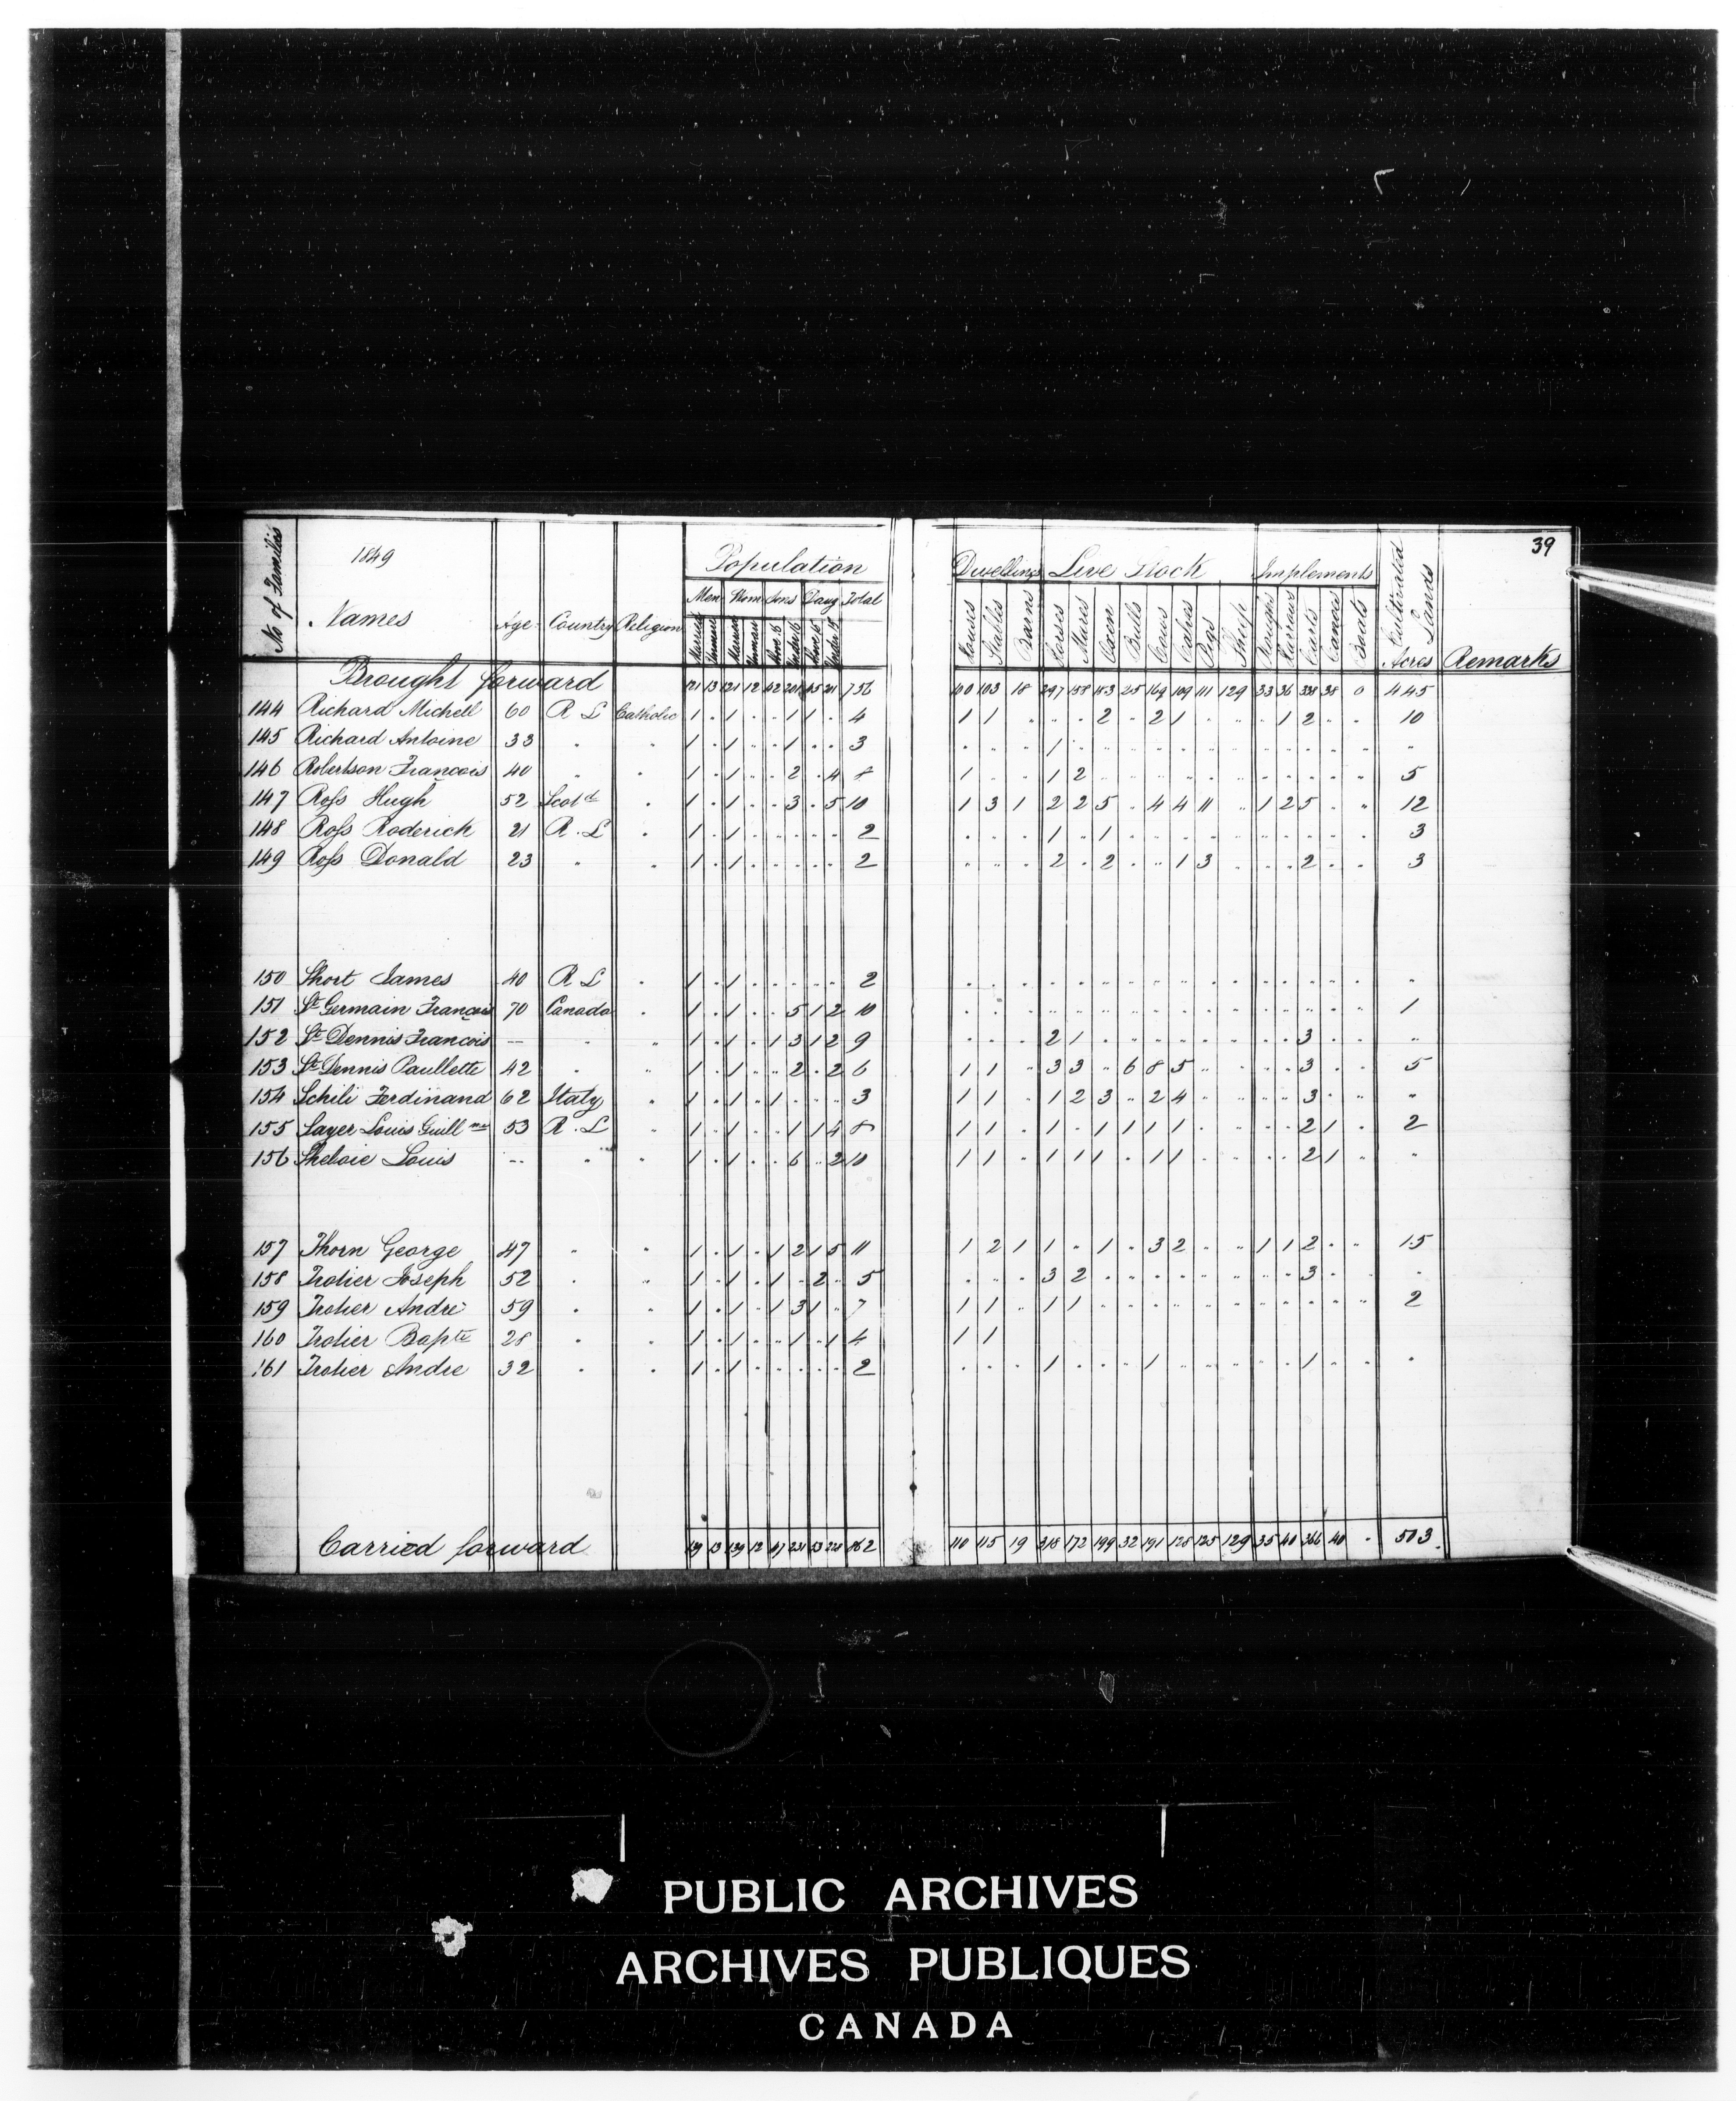 39
1849
Population
Dwellings Live Stock Implements
No of Families Names Age Country Religion Men Wom Sons Daug Total Houses Stables Barns Horses Mares Oxen Bulls Cows Calves Pigs Sheep Ploughs Harrows Carts Canoes Boats Cultivated Lands Acres Remarks
Brought forward 121 13 121 12 42 201 45 201 756 100 103 18 297 158 183 25 169 109 111 129 33 36 338 38 0 445
144 Richard Michell 60 R L Catholic 1 . 1 . . 1 1 . 4 1 1 . . . 2 . 2 1 . . . 1 2 . . 10
145 Richard Antoine 33 . . 1 . 1 . . 1 . . 3 . . . 1 . . . . . . . . . . . . "
146 Robertson François 40 . . 1 . 1 . . 2 . 4 8 1 . . 1 2 . . . . . . . . . . . 5
147 Ross Hugh 52 Scotd . 1 . 1 . . 3 . 5 10 1 3 1 2 2 5 . 4 4 11 . 1 2 5 . . 12
148 Ross Roderick 21 R. L . 1 . 1 . . . . . 2 . . . 1 . 1 . . . . . . . . . . 3
149 Ross Donald 23 . . 1 . 1 . . . . . 2 . . . 2 . 2 . . 1 3 . . . 2 . . 3
150 Short James 40 R L . 1 . 1 . . . . . 2 . . . . . . . . . . . . . . . . "
151 St Germain François 70 Canada . 1 . 1 . . 5 1 2 10 . . . . . . . . . . . . . . . . 1
152 St Dennis Francois -- . " 1 . 1 . 1 3 1 2 9 . . . 2 1 . . . . . . . . 3 . . "
153 St Dennis Paullette 42 . " 1 . 1 . . 2 . 2 6 1 1 . 3 3 . 6 8 5 . . . . 3 . . 5
154 Schili Ferdinand 62 Italy . 1 . 1 . 1 . . . 3 1 1 . 1 2 3 . 2 4 . . . . 3 . . "
155 Sayer Louis Guillme 53 R. L " 1 . 1 . . 1 1 4 8 1 1 . 1 . 1 1 1 1 . . . . 2 1 . 2
156 Louis -- . . 1 . 1 . . 6 . 2 10 1 1 . 1 1 1 . 1 1 . . . . 2 1 . "
157 Thorn George 47 . . 1 . 1 . 1 2 1 5 11 1 2 1 1 . 1 . 3 2 . . 1 1 2 . . 15
158 Trotier Joseph 52 . " 1 . 1 . 1 . 2 . 5 . . . 3 2 . . . . . . . . 3 . . .
159 Trotier André 59 . " 1 . 1 . 1 3 1 . 7 1 1 . 1 1 . . . . . . . . . . . 2
160 Trotier Bapte 28 . . 1 . 1 . . 1 . 1 4 1 1
161 Trotier Andre 32 . . 1 . 1 . . . . . 2 . . . 1 . . . 1 . . . . . 1 . . .
Carried forward 139 13 139 12 47 231 53 228 862 110 115 19 318 172 199 32 191 128 125 129 35 40 366 40 . 503
PUBLIC ARCHIVES
ARCHIVES PUBLIQUES
CANADA